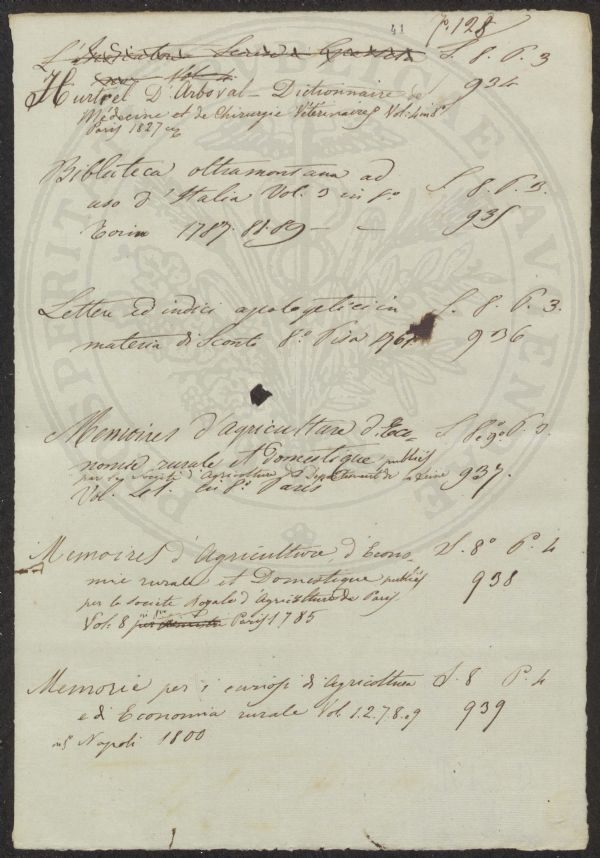 41 P. 128
L'
S. 8. P. 3
Hurtrel D'Arboval - Dictionnaire de 934
Médecine et de Chirurgie Véterinaires Vol: 4 in 8º
Paris 1827
Biblioteca oltramontana ad S. 8. P. 3.
uso d'Italia Vol. 3 in 8º 935
Torino 1787. 88. 89 - -
Lettere ed indici apologetici in S. 8. P. 3.
materia di Sconti 8º Pisa 1761 936
Memoires d'agriculture d'Eco- S. 8º P. 3.
nomie rurale et domestique publiés
par la Société d'Agriculture du Departement de la Seine 937.
Vol. en 8º Paris
Memoires d'Agriculture, d'Econo S. 8º Pº. 4
mie rurale et Domestique publiés 938
par la Societe Royale d'Agriculture de Paris
Vol: 8 Paris 1785
Memorie per i curiosi di Agricoltura S. 8 P. 4
e di Economia rurale Vol. 1. 2. 7. 8. e 9 939
in 8 Napoli 1800
PROSPERITÀ
PUBLICAE